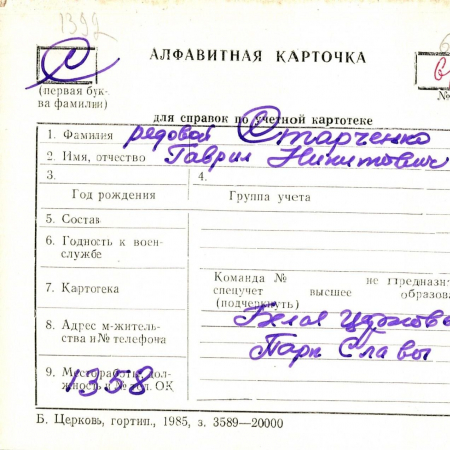 1392
С
6
АЛФАВИТНАЯ КАРТОЧКА
(первая бук-
ва фамилии)
№
для справок по учетной картотеке
1. Фамилия рядовой Старченко
2. Имя, отчество Гаврил Никитович
3.
4.
Год рождения
Группа учета
5. Состав
6. Годность к воен-
службе
7. Картотека
Команда № не предназн
спецучет высшее образова
(подчеркнуть)
8. Адрес м-житель-
ства и № телефона
Белая Церковь
Парк Славы
9. Место работы, дол-
жность и № тел. ОК
1358
Б. Церковь, гортип., 1985, з. 3589—20000